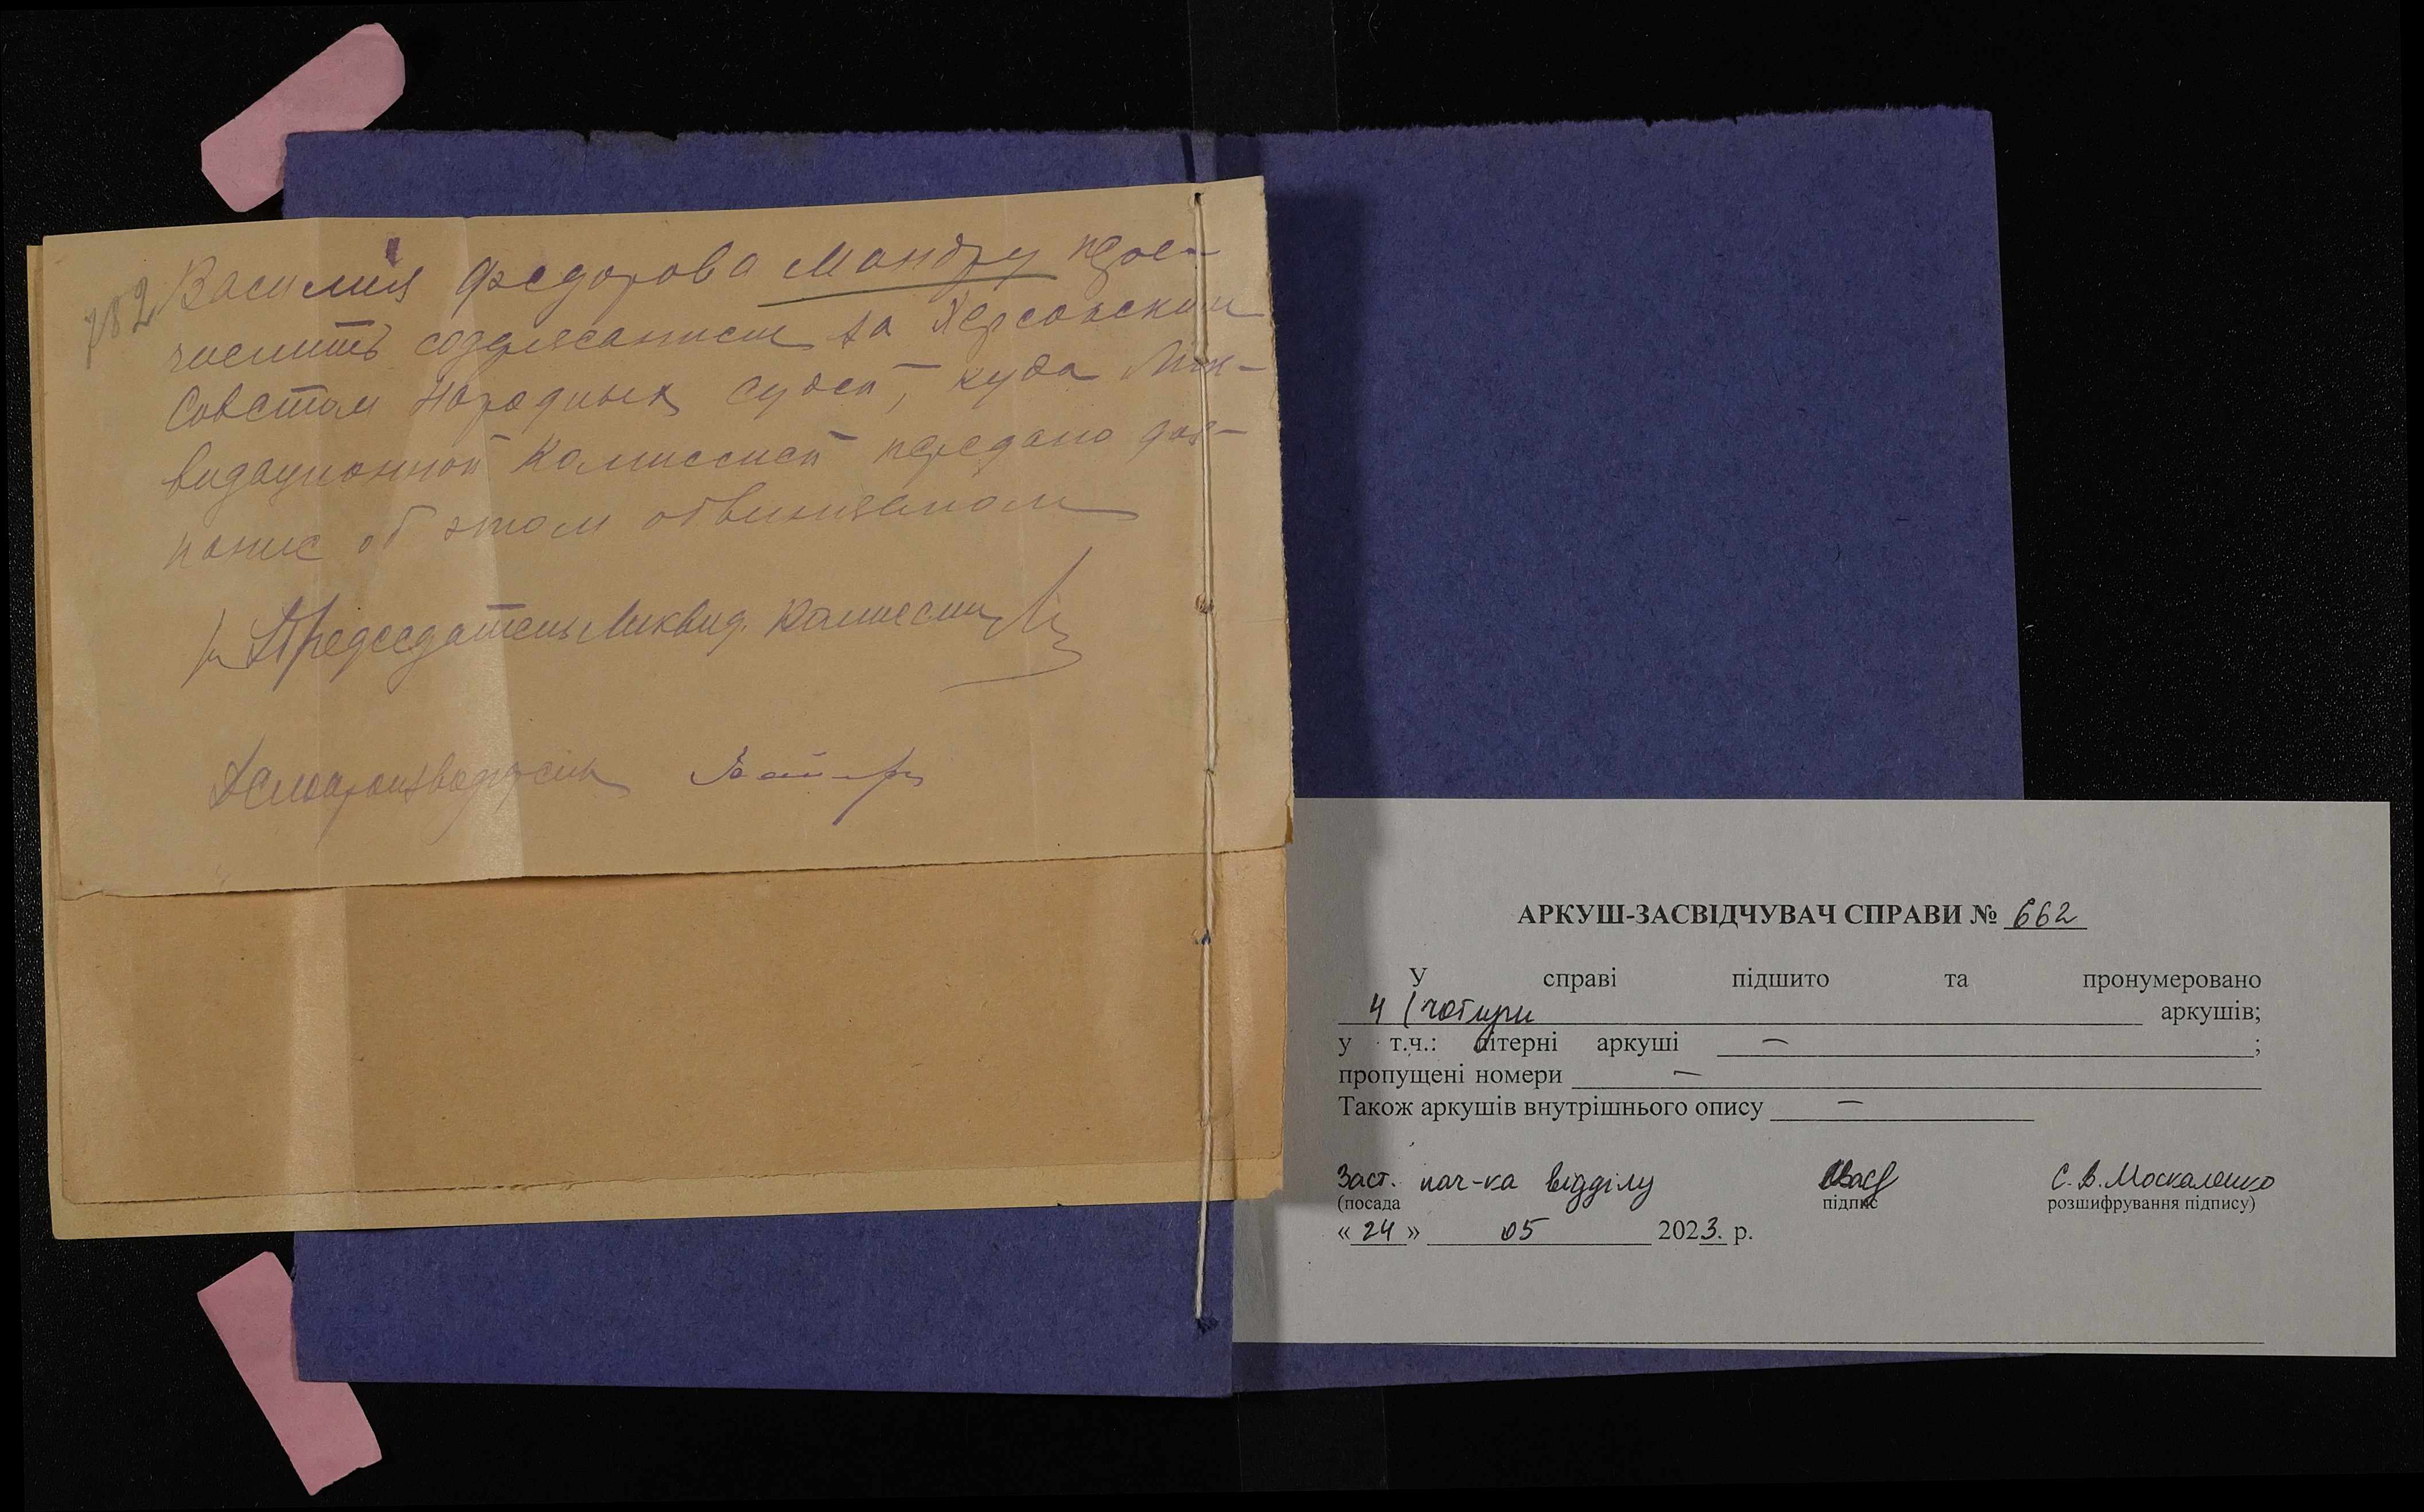 782 Василия Федорова Мандру прос-
числить содержанием за Херсонским
Советом Народных судей, куда Лик-
видационной Комиссией передано доз-
нание об этом обвиняемом
Председатель Ликвид. Комиссии
Делопроизводитель
АРКУШ-ЗАСВІДЧУВАЧ СПРАВИ № 662
У справі підшито та пронумеровано
4 (чотири аркушів;
у т.ч.: літерні аркуші — ;
пропущені номери —
Також аркушів внутрішнього опису —
Заст. нач-ка відділу С. В. Москаленко
(посада підпис розшифрування підпису)
« 24 » 05 2023. р.